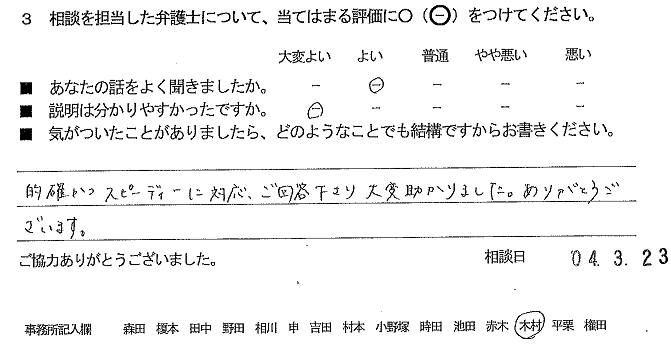 3 相談を担当した弁護士について、当てはまる評価に○（㊀）をつけてください。
大変よい よい 普通 やや悪い 悪い
■ あなたの話をよく聞きましたか。 － ㊀ － － －
■ 説明は分かりやすかったですか。 ㊀ － － － －
■ 気がついたことがありましたら、どのようなことでも結構ですからお書きください。
的確かつスピーディーに対応、ご回答下さり大変助かりました。ありがとうご
ざいます。
ご協力ありがとうございました。 相談日 04.3.23
事務所記入欄 森田 榎本 田中 野田 相川 申 吉田 村本 小野塚 時田 池田 赤木 木村 平栗 権田